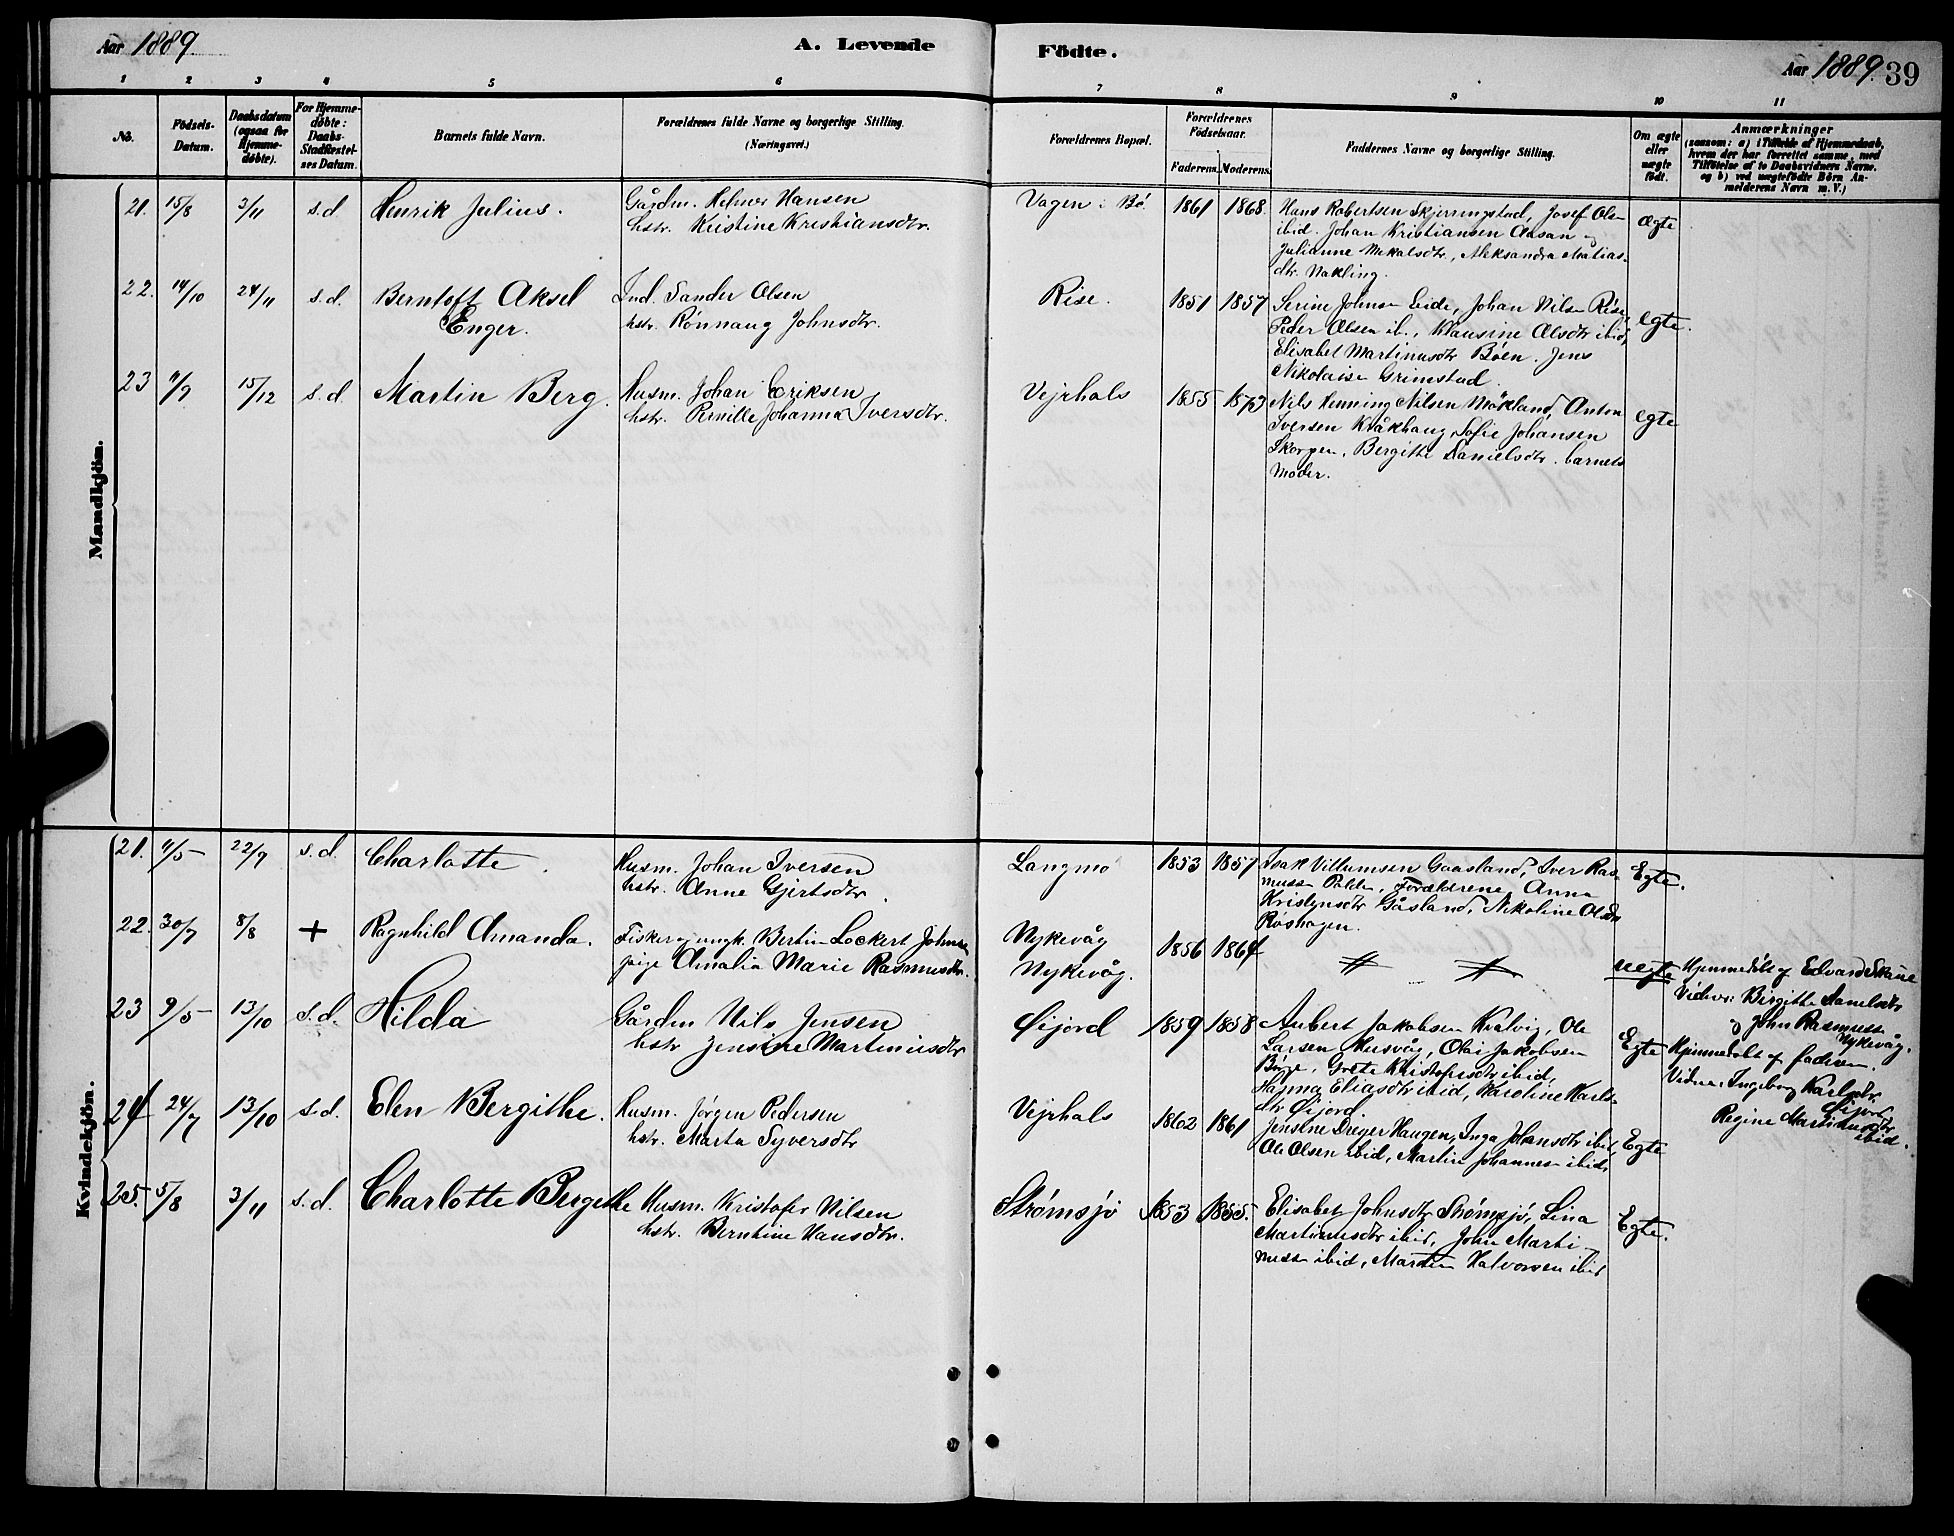 Aar 1889. A. Levende Fødte. Aar 1889. 39
1 2 3 4 5 6 7 8 9 10 11
No. Fødsels-Datum. Daabsdatum (ogsaa for Hjemme-døbte). For Hjemme-døbte: Daabs-Stadfæstel-ses Datum. Barnets fulde Navn. Forældrenes fulde Navne og borgerlige Stilling. (Næringsvei.) Forældrenes Bopæl. Forældrenes Fødselsaar. Faderens. Moderens. Faddernes Navne og borgerlige Stilling. Om ægte eller uægte født. Anmærkninger (saasom: a) i Tilfælde af Hjemmedaab, hvem der har forrettet samme, med Tilføielse af to Daabsvidners Navne, og b) ved uægtefødte Børn An-melderens Navn m. V.)
Mandkjøn.
21. 15/8 3/11 s.d. Henrik Julius. Gårdm. Helmer Hansen Vagen i Bø. 1861 1868 Hans Robertsen Skjerringstad, Josef Olsn Ægte
hstr. Kristine Kristiansdtr. ibid. Johan Kristiansen Aasan og
Julianne Mikalsdtr., Aleksandra Matias-
dtr. Nakling.
22. 14/10 24/11 s.d. Berntoft Aksel Ind. Sander Olsen Rise. 1851 1857 Serine Johnsn Eide, Johan Nilsn Rise, egte.
Enger. hstr. Rønnaug Johnsdtr. Peder Olsen ib., Klausine Olsdtr ibid,
Elisabet Martinusdtr Bøen. Jens
Nikolaisen Grimstad.
23 11/9 15/12 s.d. Martin Berg. Husm. Johan Eriksen Vejrhals 1855 1873 Nils Henning Nilsen Mökland, Anton egte
hstr. Pernille Johanna Iversdtr. Iversen Kråkhaug, Sofie Johansen
Skorpen, Bergithe Danielsdtr. barnets
Moder.
Kvindekjøn.
21. 11/5 22/9 s.d. Charlotte. Husm. Johan Iversen Langmo 1853 1857 Isak Villumsen Gaasland, Iver Ras- Egte.
hstr. Anne Gjertsdtr. mussn Polden, Forældrene, Anna
Kristensdtr Gåsland, Nikoline Olsdtr
Røshagen.
22. 30/7 8/8 + Ragnhild Amanda. Fisker og ungk. Bertin Lockert Johnsen Nykevåg 1856 1864 uegte Hjemmedöbt af Edvard Skåne
pige Amalia Marie Rasmusdtr. Nykevåg. Vidner: Birgithe Danielsdtr
og John Rasmussn
Nykevåg.
23 9/5 13/10 s.d. Hilda Gårdm Nils Jensen Øijord 1859 1858 Aubert Jakobsen Kralvig, Ole Egte Hjemmedöbt af faderen.
hstr Jensine Martinusdtr Larsen Husvåg, Olai Jakobsen Vidner: Ingeborg Karlsdtr
Böge, Grete Kristofersdtr ibid, Øijord
Hanna Eliasdtr ibid, Karoline Karls- Regine Martinusdtr
dtr Øijord ibid.
24 24/7 13/10 s.d. Elen Bergithe. Husm. Jörgen Pedersen Vejrhals 1862 1861 Jensine Dreyer Haugen, Inga Johansdtr ibid, Egte
hstr. Marta Syversdtr Ole Olsen ibid, Martin Johannesn ibid,
25. 5/8 3/11 s.d. Charlotte Bergithe Husm. Kristofer Nilsen Strömsjö 1853 1855. Elisabet Johnsdtr Strömsjö, Lina Egte.
hstr. Berntine Hansdtr. Martinusdtr ibid, John Marti-
nussn ibid, Martin Halvorsen ibid